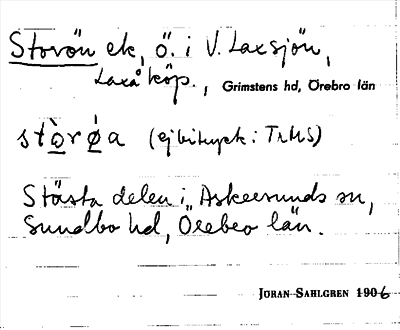 Storön ek, ö. i V. Laxsjön,
Laxå köp., Grimstens hd, Örebro län
stòrǿa (ej bitryck: Tr. MS)
Största delen i Askersunds sn,
Sundbo hd, Örebro län.
JÖRAN SAHLGREN 1906